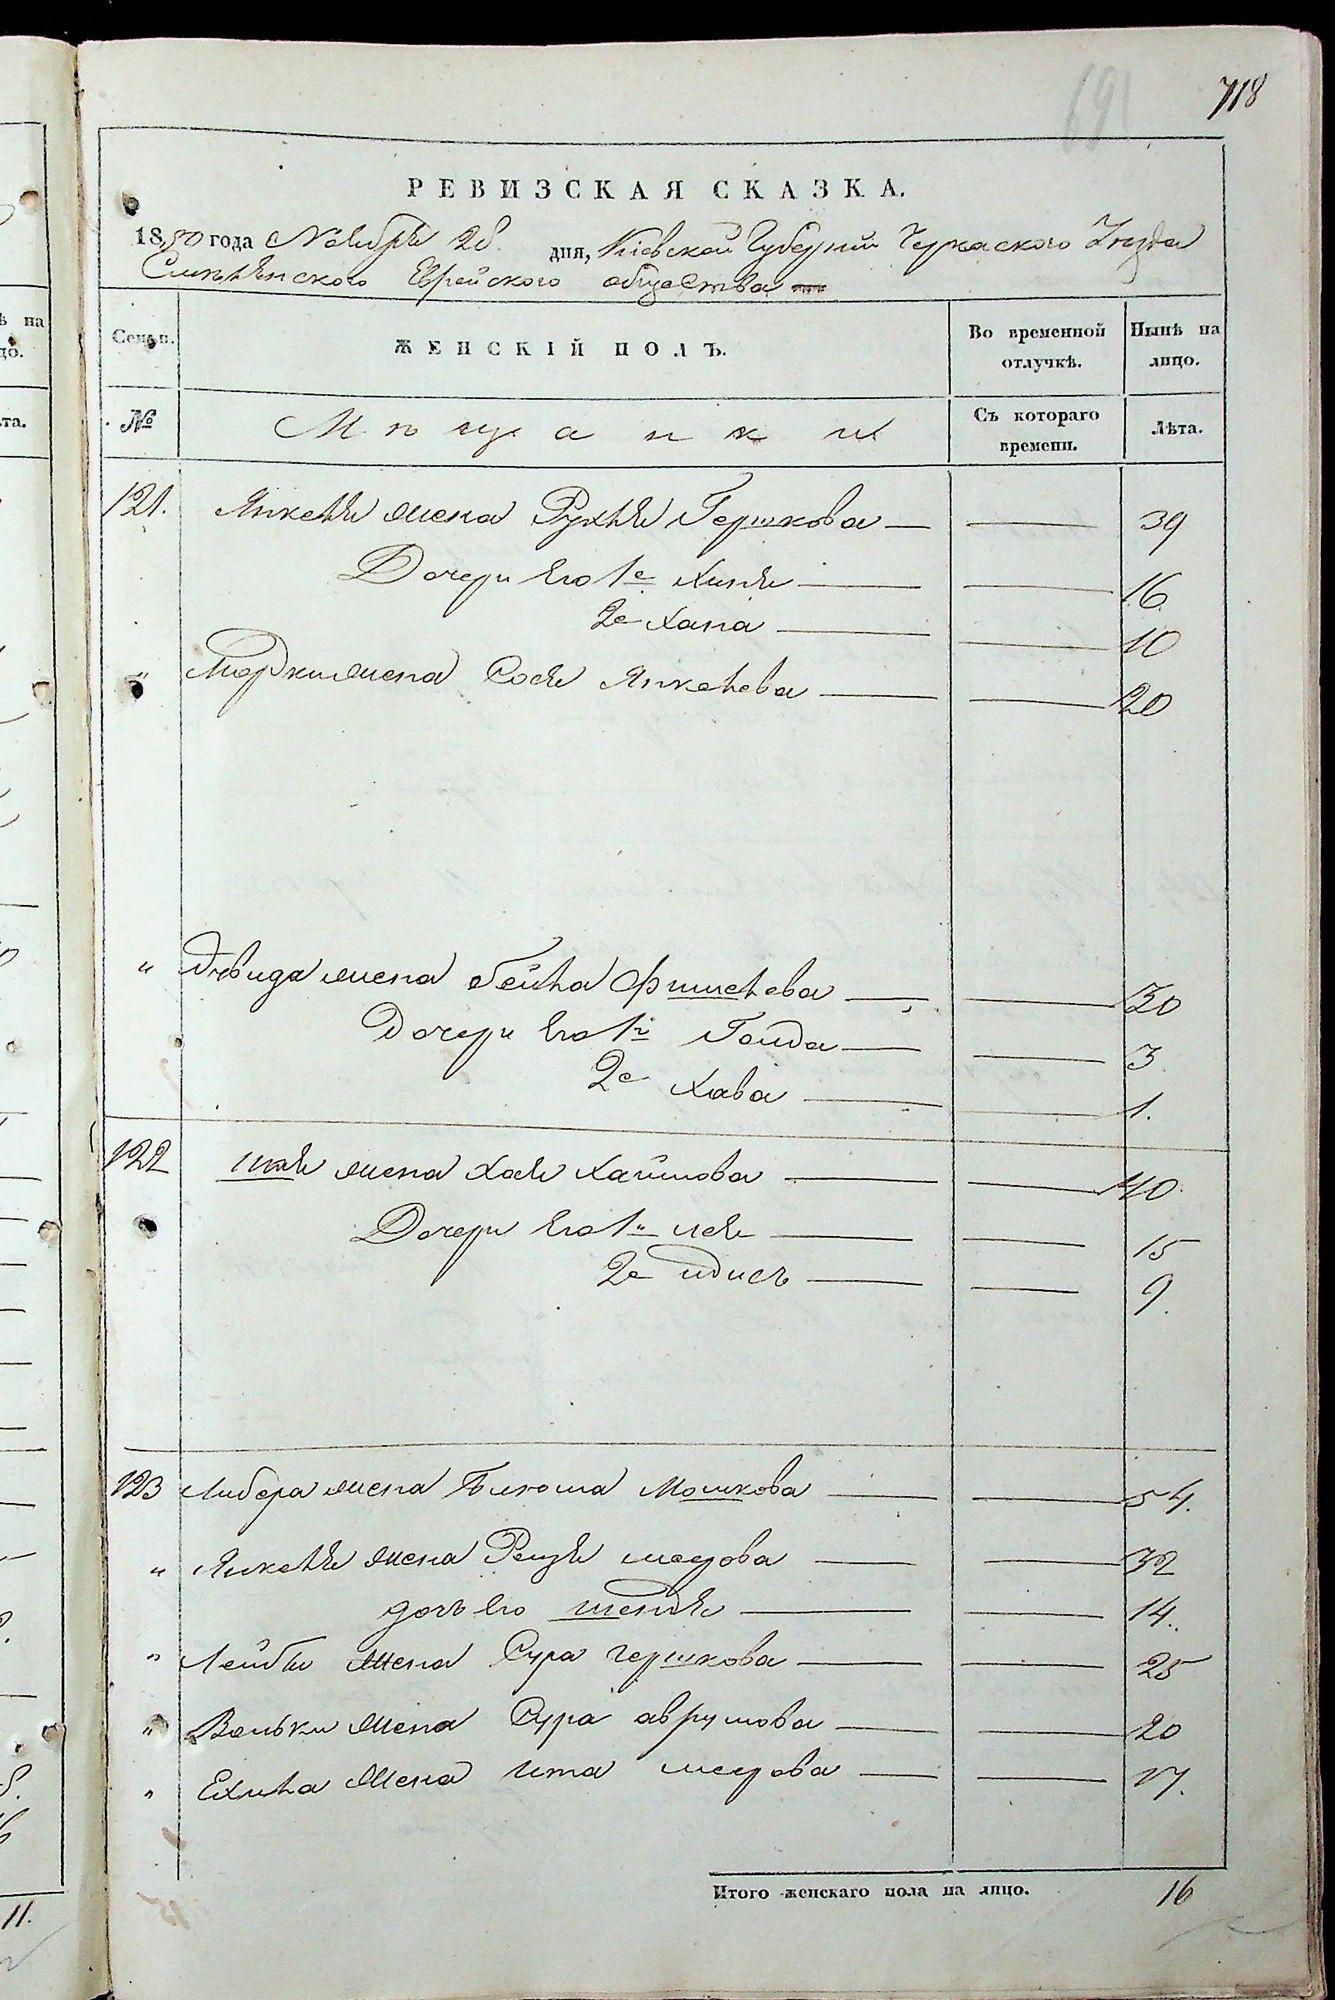 718
691
РЕВИЗСКАЯ СКАЗКА.
1850 года Ноября 28 дня, Кіевской Губерніи Черкаского Уѣзда
Смѣлянского Еврейского общества
Семьи. ЖЕНСКІЙ ПОЛЪ. Во временной отлучкѣ. Нынѣ на лицо.
№ Мѣщанки Съ котораго времени. Лѣта.
121. Янкеля жена Рухля Гершкова — — 39
Дочери его 1е Хиня — — 16
2е Хана — — 10
" Мордки жена Сося Янкелева — — 20
" Довида жена Бейла Фишелева — — 30
Дочери его 1я Голда — — 3
2е Хава — — 1.
122 Шая жена Хая Хаимова — — 40.
Дочери его 1я Лея — — 15
2е Идись — — 9.
123 Либера жена Мошкова — — 54.
" Янкеля жена Рейзя Меерова — — 32
дочь его Шендля — — 14.
" Лейбы жена Сура Гершкова — — 25
" Вольки жена Сура Аврумова — — 20
" Ехила жена Ита Меерова — — 17.
Итого женскаго пола на лицо. 16
ѣ на
цо.
ѣта.
11.